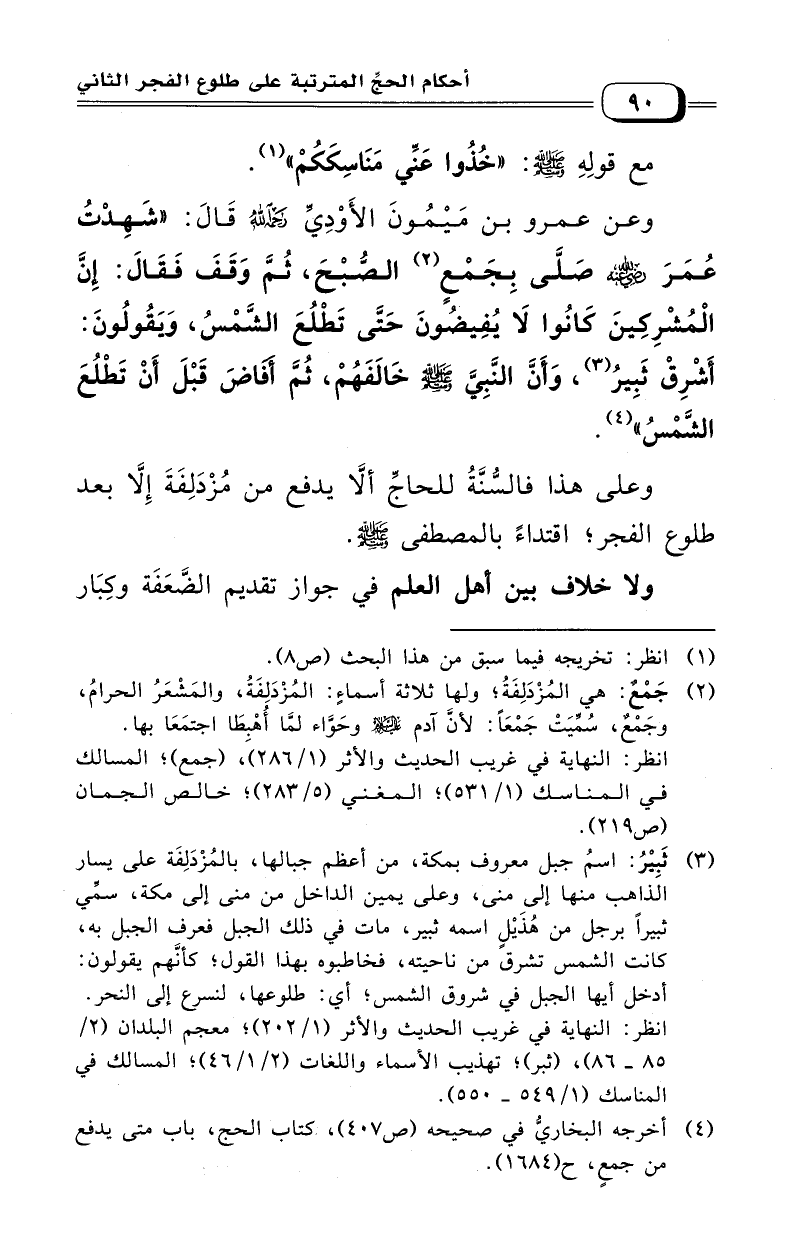 أحكام الحجّ المترتبة على طلوع الفجر الثاني
٩٠
مع قولِهِ ﷺ: «خُذُوا عَنِّي مَنَاسِكَكُمْ»(١).
وعن عمرو بن مَيْمُونَ الأَوْدِيِّ رَحِمَهُ اللَّهُ قَالَ: «شَهِدْتُ
عُمَرَ رَضِيَ اللَّهُ عَنْهُ صَلَّى بِجَمْعٍ(٢) الصُّبْحَ، ثُمَّ وَقَفَ فَقَالَ: إِنَّ
الْمُشْرِكِينَ كَانُوا لَا يُفِيضُونَ حَتَّى تَطْلُعَ الشَّمْسُ، وَيَقُولُونَ:
أَشْرِقْ ثَبِيرُ(٣)، وَأَنَّ النَّبِيَّ ﷺ خَالَفَهُمْ، ثُمَّ أَفَاضَ قَبْلَ أَنْ تَطْلُعَ
الشَّمْسُ»(٤).
وعلى هذا فالسُّنَّةُ للحاجِّ ألَّا يدفع من مُزْدَلِفَةَ إِلَّا بعد
طلوع الفجر؛ اقتداءً بالمصطفى ﷺ.
ولا خلاف بين أهل العلم في جواز تقديم الضَّعَفَة وكِبَار
(١) انظر: تخريجه فيما سبق من هذا البحث (ص٨).
(٢) جَمْعٌ: هي المُزْدَلِفَةُ؛ ولها ثلاثة أسماءٍ: المُزْدَلِفَةُ، والمَشْعَرُ الحرامُ،
وجَمْعٌ، سُمِّيَتْ جَمْعَاً: لأنَّ آدم عَلَيْهِ السَّلَامُ وحَوَّاء لمَّا أُهْبِطَا اجتمَعَا بها.
انظر: النهاية في غريب الحديث والأثر (٢٨٦/١)، (جمع)؛ المسالك
في المناسك (٥٣١/١)؛ المغني (٢٨٣/٥)؛ خالص الجمان
(ص٢١٩).
(٣) ثَبِيْرُ: اسمُ جبل معروف بمكة، من أعظم جبالها، بالمُزْدَلِفَة على يسار
الذاهب منها إلى منى، وعلى يمين الداخل من منى إلى مكة، سمِّي
ثبيراً برجل من هُذَيْلٍ اسمه ثبير، مات في ذلك الجبل فعرف الجبل به،
كانت الشمس تشرق من ناحيته، فخاطبوه بهذا القول؛ كأنَّهم يقولون:
أدخل أيها الجبل في شروق الشمس؛ أي: طلوعها، لنسرع إلى النحر.
انظر: النهاية في غريب الحديث والأثر (٢٠٢/١)؛ معجم البلدان (٢/
٨٥ ـ ٨٦)، (ثبر)؛ تهذيب الأسماء واللغات (٤٦/١/٢)؛ المسالك في
المناسك (٥٤٩/١ ـ ٥٥٠).
(٤) أخرجه البخاريُّ في صحيحه (ص٤٠٧)، كتاب الحج، باب متى يدفع
من جمعٍ، ح(١٦٨٤).